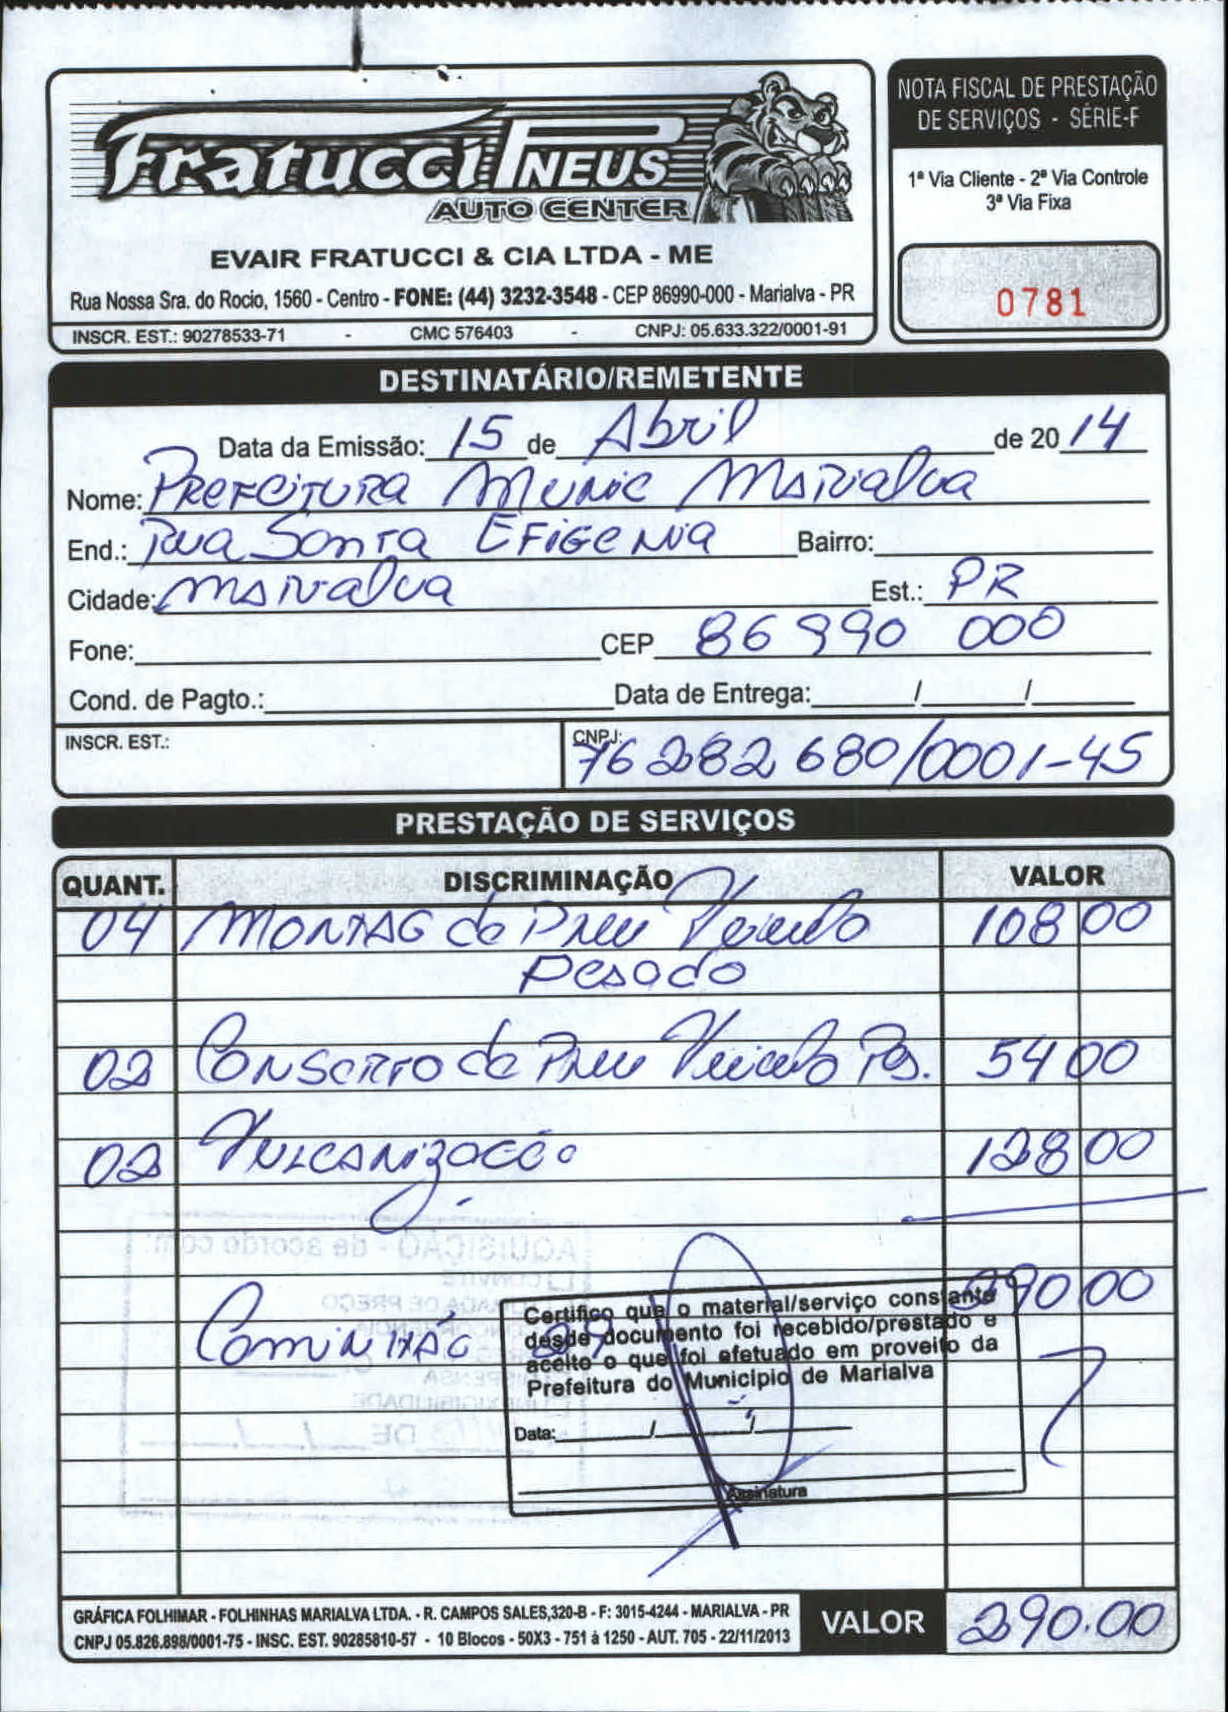 Fratucci PNEUS
AUTO CENTER
EVAIR FRATUCCI & CIA LTDA - ME
Rua Nossa Sra. do Rocio, 1560 - Centro - FONE: (44) 3232-3548 - CEP 86990-000 - Marialva - PR
INSCR. EST.: 90278533-71 - CMC 576403 - CNPJ: 05.633.322/0001-91
NOTA FISCAL DE PRESTAÇÃO
DE SERVIÇOS - SÉRIE-F
1ª Via Cliente - 2ª Via Controle
3ª Via Fixa
0781
DESTINATÁRIO/REMETENTE
Data da Emissão: 15 de Abril de 2014
Nome: Prefeitura Munic Marialva
End.: Rua Santa Efigenia Bairro:
Cidade: Marialva Est.: PR
Fone: CEP 86990 000
Cond. de Pagto.: Data de Entrega: / /
INSCR. EST.: CNPJ: 76282680/0001-45
PRESTAÇÃO DE SERVIÇOS
QUANT. DISCRIMINAÇÃO VALOR
04 Montag de Pneu Veiculo 108 00
Pesado
02 Conserto de Pneu Veiculo Ps. 54 00
02 Vulcanização 128 00
290 00
Caminhão
Certifico que o material/serviço constante
desde documento foi recebido/prestado e
aceito o que foi efetuado em proveito da
Prefeitura do Município de Marialva
Data: / /
Assinatura
AQUISIÇÃO - de acordo com:
CONVITE
TOMADA DE PREÇO
CONCORRÊNCIA
DISPENSA
INEXIGIBILIDADE
DE / /
GRÁFICA FOLHIMAR - FOLHINHAS MARIALVA LTDA. - R. CAMPOS SALES,320-B - F: 3015-4244 - MARIALVA - PR
CNPJ 05.826.898/0001-75 - INSC. EST. 90285810-57 - 10 Blocos - 50X3 - 751 à 1250 - AUT. 705 - 22/11/2013
VALOR 290.00